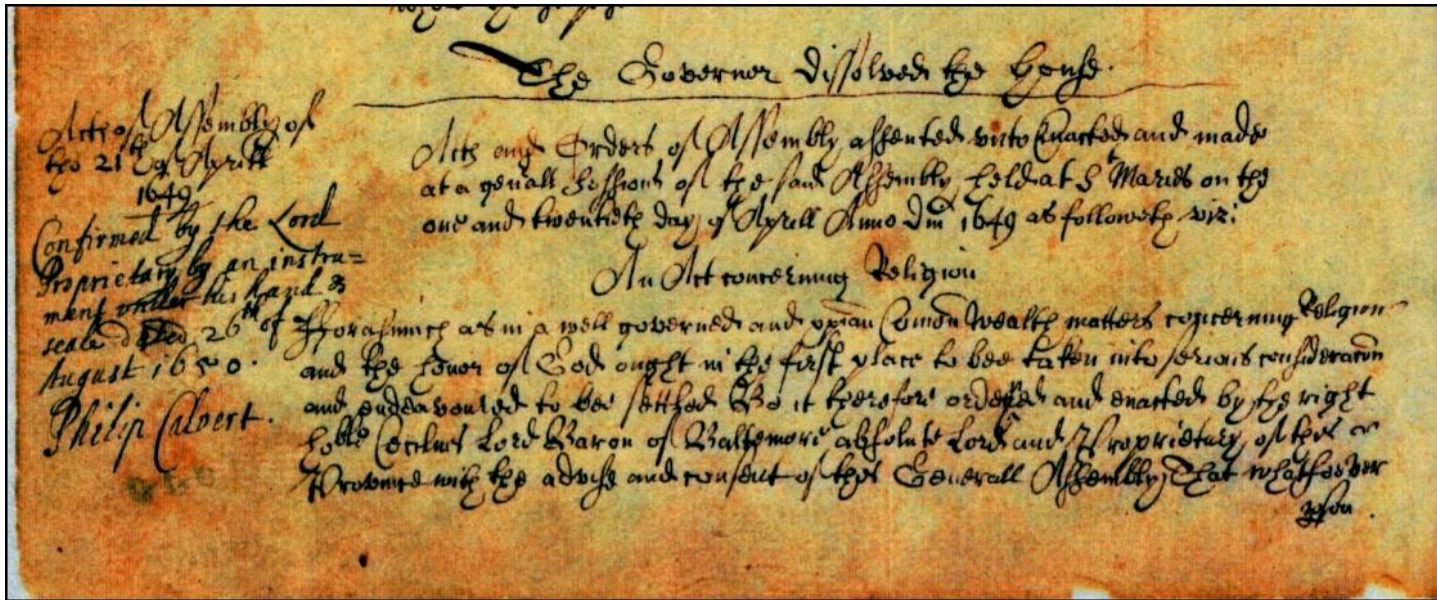 The Governor dissolved the house.
Acts of Assembly of
the 21th of Aprill
1649
Confirmed by the Lord
Proprietary by an instru=
ment under his hand &
seale dated 26th of
August 1650.
Philip Calvert.
Acts and Orders of Assembly assented vnto Enacted and made
at a genall Sessions of the said Assembly held at St Maries on the
one and twentieth day of Aprill Anno Dm 1649 as followeth viz:
An Act concerning Religion
fforasmuch as in a well governed and xpian Comon Wealth matters concerning Religion
and the honor of God ought in the first place to bee taken into serious consideracon
and endeavoured to bee settled Be it therefore ordered and enacted by the right
hoble Cecilius Lord Baron of Baltemore absolute Lord and Proprietary of this
Province with the advise and consent of this Generall Assembly, That whatsoever
pson